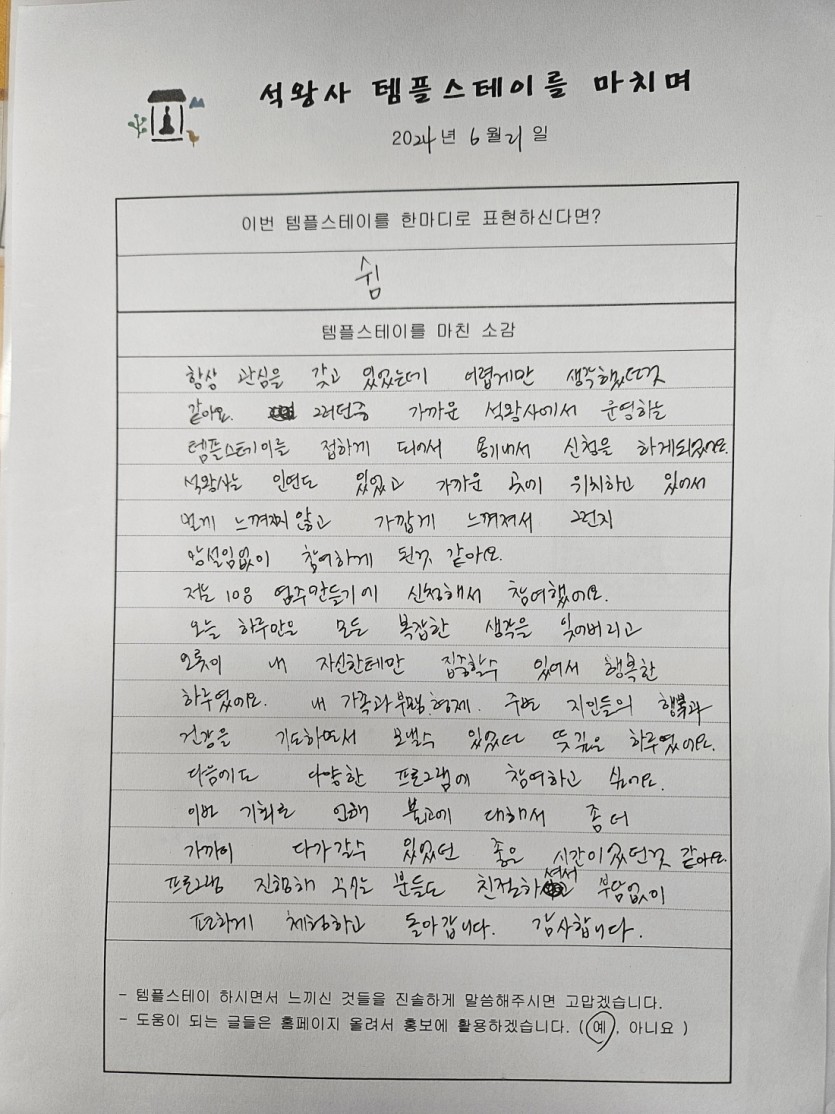 석왕사 템플스테이를 마치며
2024년 6월 21일
이번 템플스테이를 한마디로 표현하신다면?
쉼
템플스테이를 마친 소감
항상 관심을 갖고 있었는데 어렵게만 생각했던것
같아요. 그러던중 가까운 석왕사에서 운영하는
템플스테이를 접하게 되어서 용기내서 신청을 하게되었어요.
석왕사는 인연도 있었고 가까운 곳에 위치하고 있어서
멀게 느껴찌않고 가깝게 느껴져서 그런지
망설임없이 참여하게 된것 같아요.
저는 108 염주만들기에 신청해서 참여했어요.
오늘 하루만은 모든 복잡한 생각을 잊어버리고
오롯이 내 자신한테만 집중할수 있어서 행복한
하루였어요. 내 가족과부모,형제. 주변 지인들의 행복과
건강을 기도하면서 보낼수 있었던 뜻깊은 하루였어요.
다음에도 다양한 프로그램에 참여하고 싶어요.
이번 기회로 인해 불교에 대해서 좀 더
가까이 다가갈수 있었던 좋은 시간이었던것 같아요.
프로그램 진행해 주시는 분들도 친절하셔서 부담없이
편하게 체험하고 돌아갑니다. 감사합니다.
- 템플스테이 하시면서 느끼신 것들을 진솔하게 말씀해주시면 고맙겠습니다.
- 도움이 되는 글들은 홈페이지 올려서 홍보에 활용하겠습니다. ( 예, 아니요 )